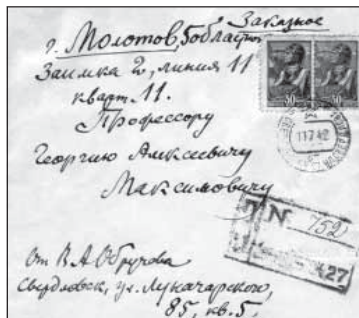 Заказное
г. Молотов, областной
Заимка 2, линия 11
кварт. 11.
Профессору
Георгию Алексеевичу
Максимовичу
30 30
11 7 42
N 752
427
От В.А. Обручева
Свердловск, ул. Луначарского,
85, кв. 5.